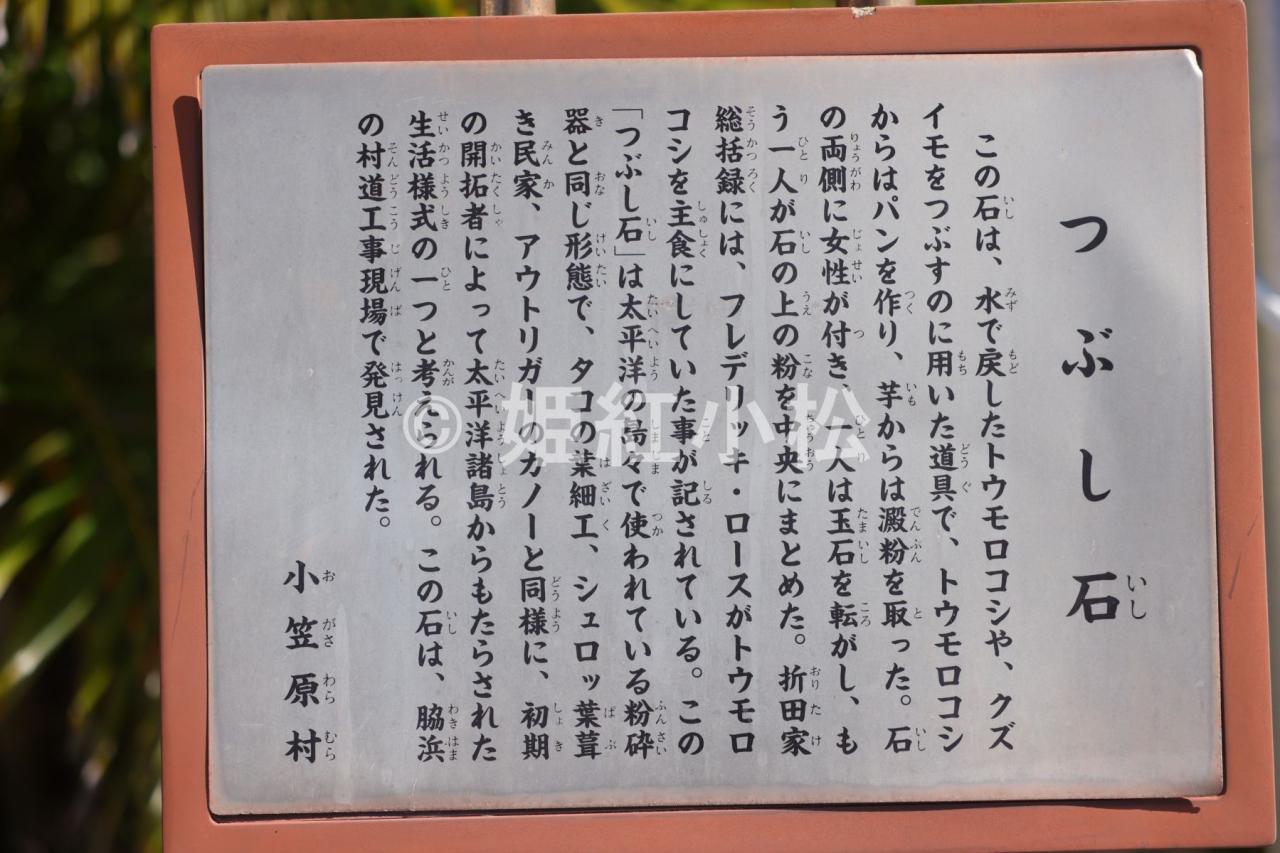 つぶし石
いし
この石は、水で戻したトウモロコシや、クズ
イモをつぶすのに用いた道具で、トウモロコシ
からはパンを作り、芋からは澱粉を取った。石
の両側に女性が付き、一人は玉石を転がし、も
う一人が石の上の粉を中央にまとめた。折田家
総括録には、フレデリッキ・ロースがトウモロ
コシを主食にしていた事が記されている。この
「つぶし石」は太平洋の島々で使われている粉砕
器と同じ形態で、タコの葉細工、シュロッ葉葺
き民家、アウトリガーのカノーと同様に、初期
の開拓者によって太平洋諸島からもたらされた
生活様式の一つと考えられる。この石は、脇浜
の村道工事現場で発見された。
小笠原村
おがさわらむら
© 姫紅小松